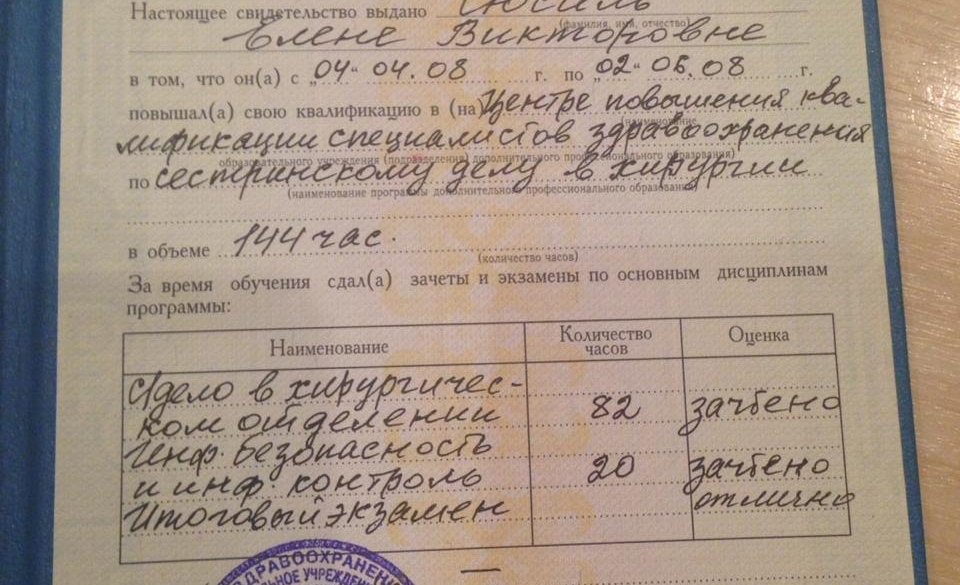 Настоящее свидетельство выдано
(фамилия, имя, отчество)
Елене Викторовне
в том, что он(а) с „04“ 04.08 г. по „02“ 06.08 г.
повышал(а) свою квалификацию в (на) Центре повышения ква-
(наименование
лификации специалистов здравоохранения
образовательного учреждения (подразделения) дополнительного профессионального образования)
по сестринскому делу в хирургии
(наименование программы дополнительного профессионального образования)
в объеме 144 час.
(количество часов)
За время обучения сдал(а) зачеты и экзамены по основным дисциплинам
программы:
Наименование Количество часов Оценка
С/дело в хирургичес-
ком отделении 82 зачтено
Инф. безопасность
и инф контроль 20 зачтено
Итоговый экзамен отлично
ЗДРАВООХРАНЕНИ
ЛЬНОЕ УЧРЕЖДЕНИ